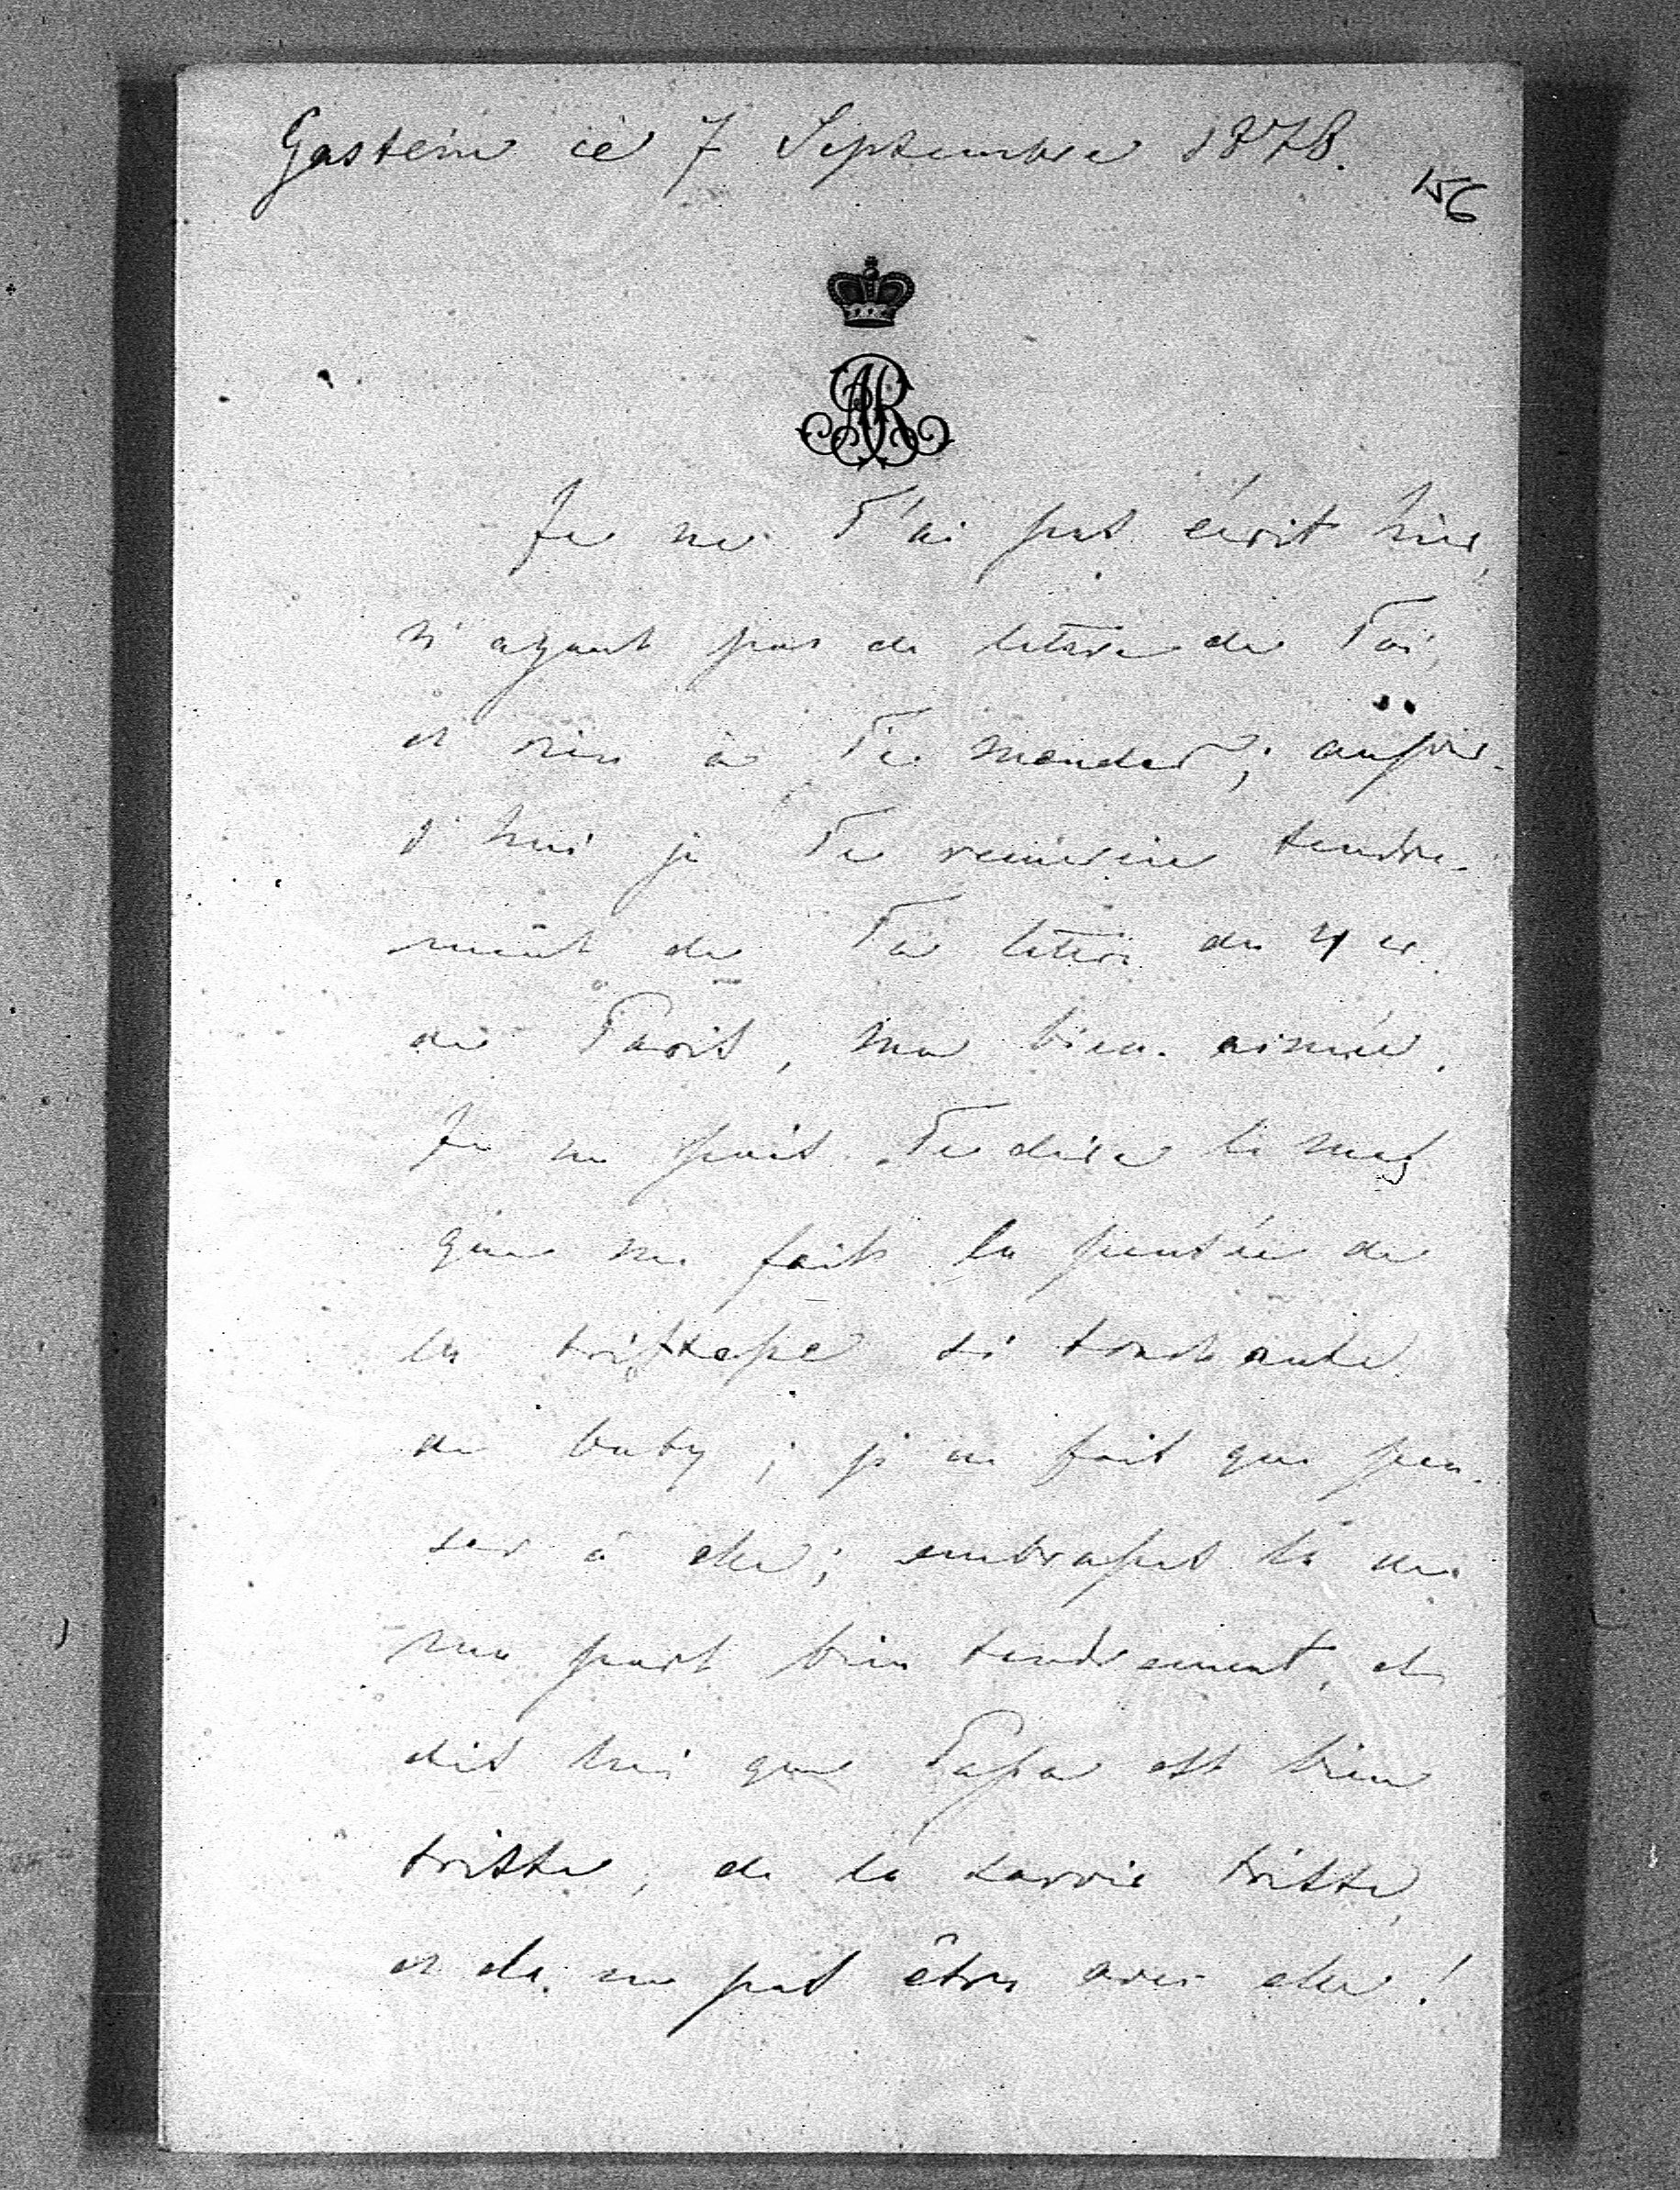 Gastein ce 7 Septembre 1878.
156
AR
Je ne T'ai pas écrit hier,
n'ayant pas de lettre de Toi,
et rien à Te mander; aujour-
d'hui je Te remercie tendre-
ment de Ta lettre du 4 et.
de Paris, ma bien-aimée.
Je ne puis Te dire le mal
que me fait la pensée de
la tristesse si touchante
de baby; je ne fais que pen-
ser à elle; embrasses la de
ma part bien tendrement, et
dis lui que Papa est bien
triste, de la savoir triste,
et de ne pas être avec elle!